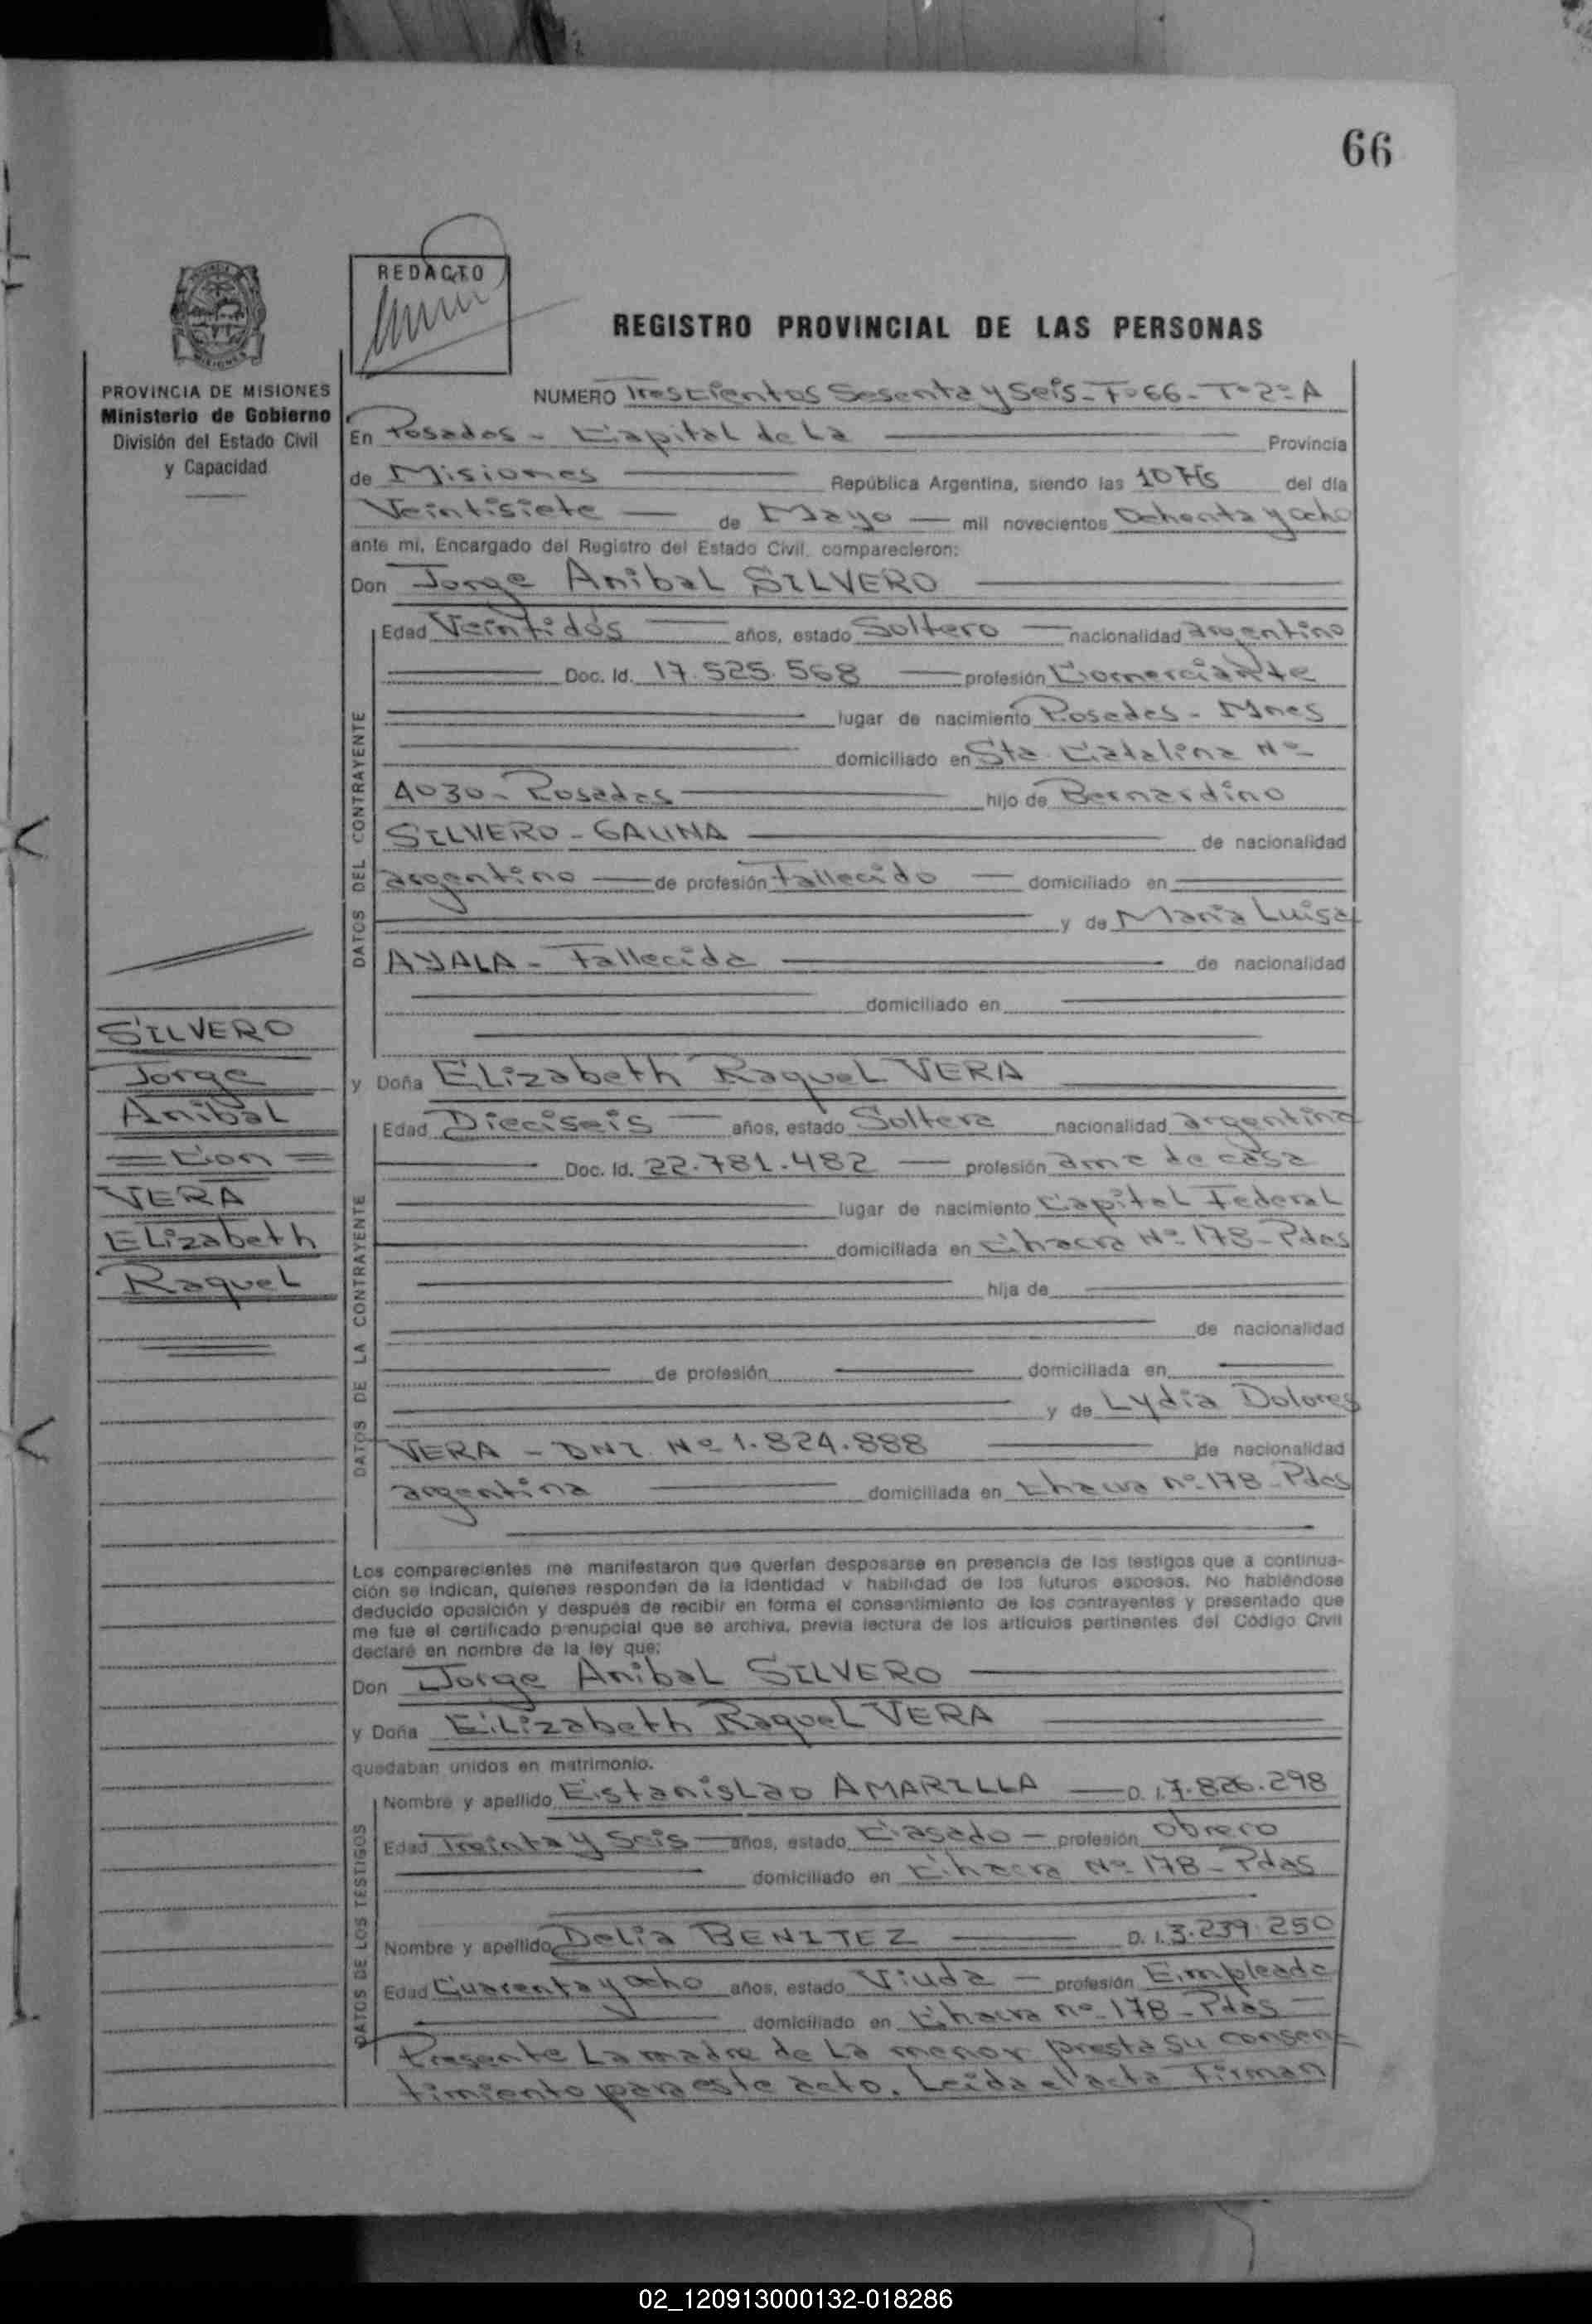 66
REDACTO
REGISTRO PROVINCIAL DE LAS PERSONAS
PROVINCIA DE MISIONES
Ministerio de Gobierno
División del Estado Civil
y Capacidad
SILVERO
Jorge
Anibal
= Con =
VERA
Elizabeth
Raquel
NUMERO Trescientos Sesenta y Seis - Fº 66 - Tº 2º A
En Posadas - Capital de La Provincia
de Misiones República Argentina, siendo las 10 Hs del día
Veintisiete de Mayo mil novecientos Ochenta y ocho
ante mi, Encargado del Registro del Estado Civil, comparecieron:
Don Jorge Anibal SILVERO
DATOS DEL CONTRAYENTE
Edad Veintidós años, estado Soltero nacionalidad argentino
Doc. Id. 17.525.568 profesión Comerciante
lugar de nacimiento Posadas - Mnes
domiciliado en Sta Catalina Nº
4030 - Posadas hijo de Bernardino
SILVERO - GAUNA de nacionalidad
argentino de profesión Fallecido domiciliado en
y de Maria Luisa
AYALA - Fallecida de nacionalidad
domiciliado en
y Doña Elizabeth Raquel VERA
DATOS DE LA CONTRAYENTE
Edad Dieciseis años, estado Soltera nacionalidad argentina
Doc. Id. 22.781.482 profesión ama de casa
lugar de nacimiento Capital Federal
domiciliada en Chacra Nº 178 - Pdas
hija de
de nacionalidad
de profesión domiciliada en
y de Lydia Dolores
VERA - DNI Nº 1.824.888 de nacionalidad
argentina domiciliada en Chacra nº 178 - Pdas
Los comparecientes me manifestaron que querían desposarse en presencia de los testigos que a continua-
ción se indican, quienes responden de la identidad y habilidad de los futuros esposos. No habiéndose
deducido oposición y después de recibir en forma el consentimiento de los contrayentes y presentado que
me fue el certificado prenupcial que se archiva, previa lectura de los artículos pertinentes del Código Civil
declaré en nombre de la ley que:
Don Jorge Anibal SILVERO
y Doña Elizabeth Raquel VERA
quedaban unidos en matrimonio.
DATOS DE LOS TESTIGOS
Nombre y apellido Estanislao AMARILLA D. I. 7.826.298
Edad Treinta y Seis años, estado Casado - profesión Obrero
domiciliado en Chacra Nº 178 - Pdas
Nombre y apellido Delia BENITEZ D. I. 3.239.250
Edad Cuarenta y ocho años, estado Viuda - profesión Empleada
domiciliado en Chacra nº 178 - Pdas
Presente La madre de La menor presta su consen-
timiento para este acto. Leida el acta Firman
02_120913000132-018286